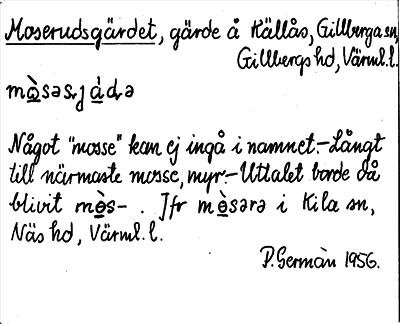 Moserudsgärdet, gärde å Källås, Gillberga sn,
Gillbergs hd, Värml. l.
mò̲səsɟá̲də
Något "mosse" kan ej ingå i namnet.- Långt
till närmaste mosse, myr.- Uttalet borde då
blivit mò̲s- . Jfr mò̲sərə i Kila sn,
Näs hd, Värml. l.
P. Germàn 1956.